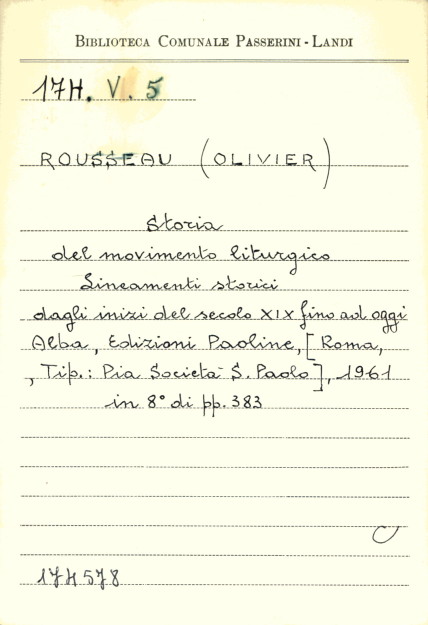 BIBLIOTECA COMUNALE PASSERINI-LANDI
17H. V. 5
ROUSSEAU (OLIVIER)
Storia
del movimento liturgico
Lineamenti storici
dagli inizi del secolo XIX fino ad oggi
Alba, Edizioni Paoline, [Roma,
, Tip.: Pia Società S. Paolo], 1961
in 8° di pp. 383
174578